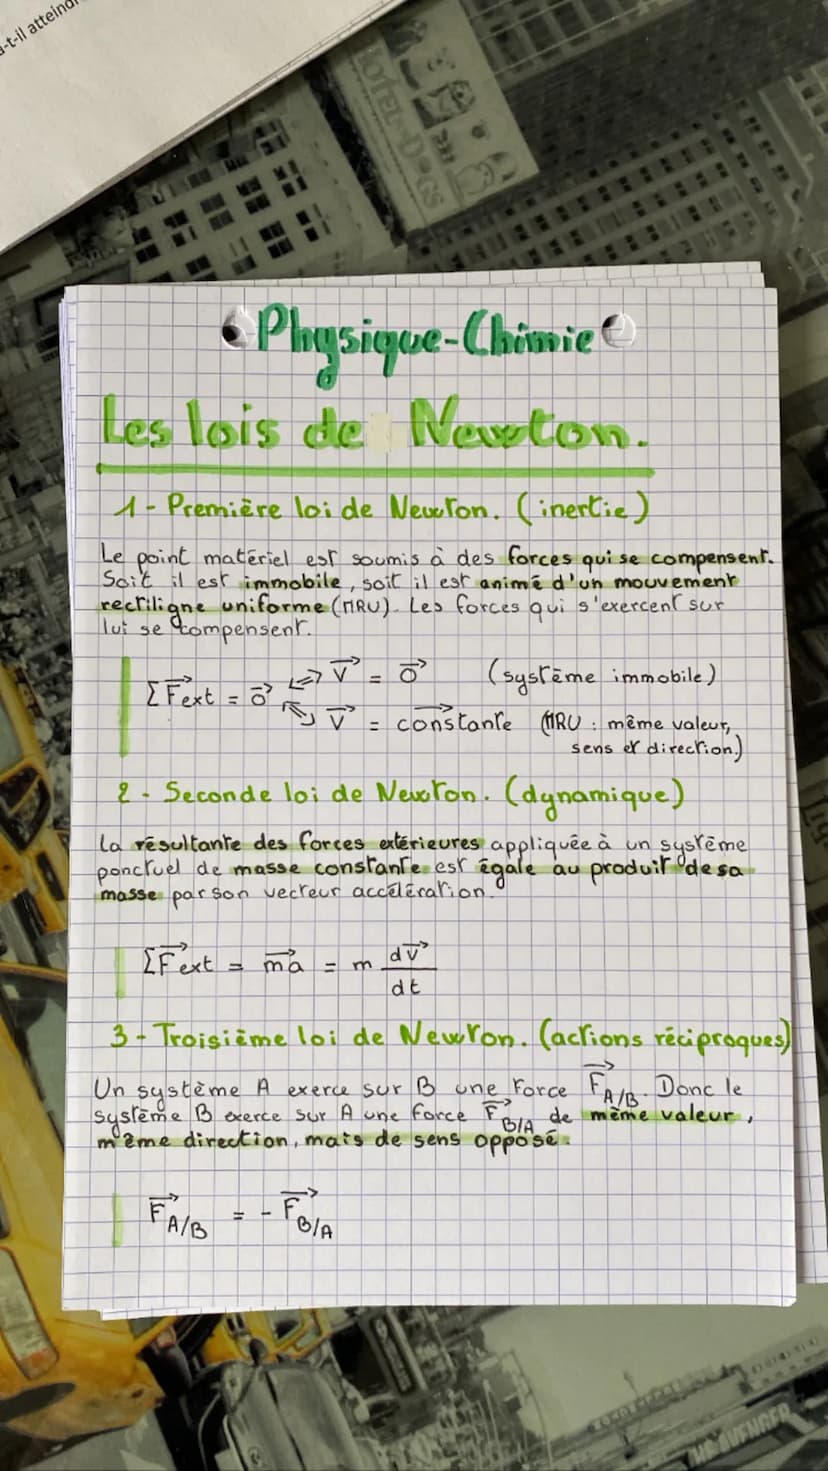 -t-il atteind
HOTEL-DOGS
Physique-Chimie
Les lois de Newton.
1 - Première loi de Newton. (inertie)
Le point matériel est soumis à des forces qui se compensent.
Soit il est immobile, soit il est animé d'un mouvement
rectiligne uniforme (MRU). Les forces qui s'exercent sur
lui se compensent.
⇔ V⃗ = 0⃗ (système immobile)
ΣF⃗ext = 0⃗
⇔ V⃗ = constante (MRU : même valeur,
sens et direction.)
2 - Seconde loi de Newton. (dynamique)
La résultante des forces extérieures appliquée à un système
ponctuel de masse constante est égale au produit de sa
masse par son vecteur accélération.
ΣF⃗ext = ma⃗ = m dv⃗/dt
3 - Troisième loi de Newton. (actions réciproques)
Un système A exerce sur B une force F⃗A/B. Donc le
système B exerce sur A une force F⃗B/A de même valeur,
même direction, mais de sens opposé.
F⃗A/B = - F⃗B/A